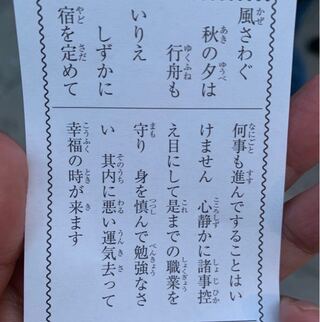 風さわぐ
秋の夕は
行舟も
いりえ
しずかに
宿を定めて
何事も進んですることはい
けません 心静かに諸事控
え目にして是までの職業を
守り 身を慎んで勉強なさ
い 其内に悪い運気去って
幸福の時が来ます